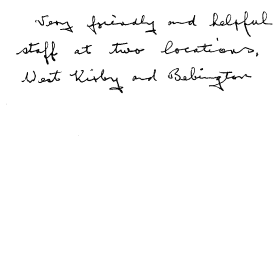 Very friendly and helpful
staff at two locations,
West Kirby and Bebington